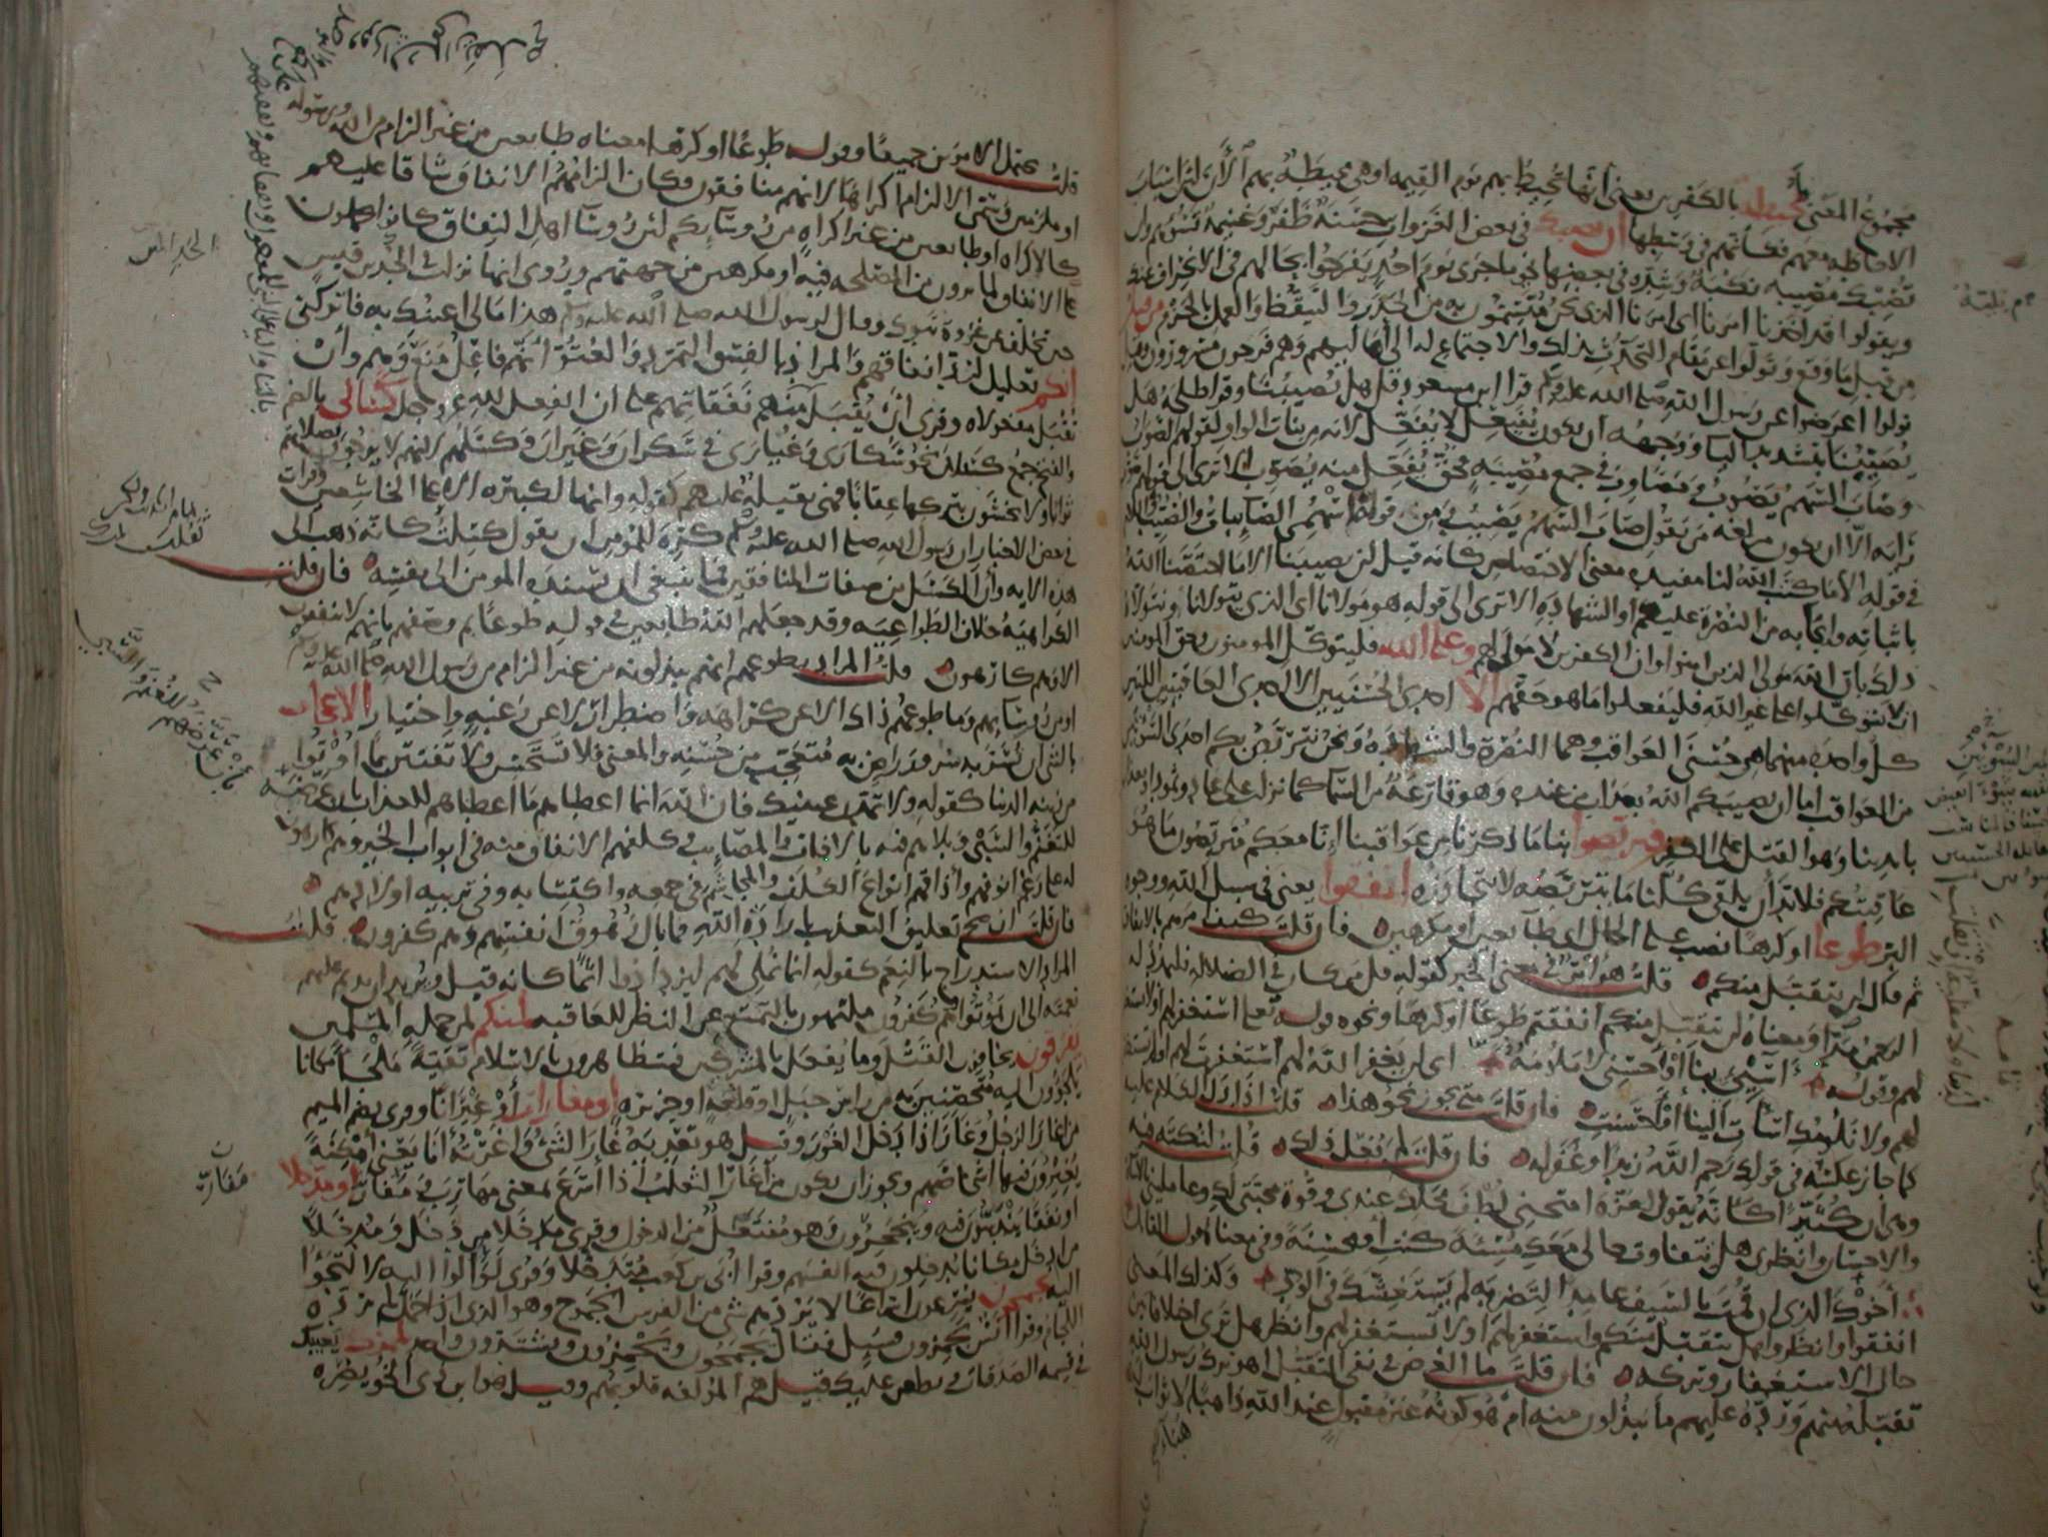 مجموع المعنى لمحيطة بالكفرين يعنى انها تحيط بهم يوم القيمة او هى محيطة بهم الآن لان اسباب
الاحاطة معهم فكأنهم فى وسطها ان تصبك فى بعض الغزوات حسنة ظفر وغنيمة تسؤهم وان
تصبك مصيبة نكبة وشدة فى بعضها نحو ما جرى يوم احد يفرحوا بحالهم فى الانحراف عنك
ويقولوا قد اخذنا امرنا اى امرنا الذى نحن متسمون به من الحذر والتيقظ والعمل بالحزم من قبل
من قبل ما وقع وتولوا عن مقام التحدث بذلك والاجتماع له الى اهاليهم وهم فرحون مسرورون وقيل
تولوا اعرضوا عن رسول الله صلى الله عليه وسلم قرا ابن مسعود قل هل يصيبنا وقرا طلحة هل
يصيبنا بتشديد اليا ووجهه ان يكون يفيعل لا يفعل لانه من بنات الواو لقولهم الصواب
وصاب السهم يصوب ومصاوب فى جمع مصيبة فحق يفعل منه يصوب الا ترى الى قولهم صوب
رايه الا ان يكون من لغة من يقول صاب السهم يصيب ومن قوله اسهمى الصايبات والصيب واللام
فى قوله الا ما كتب الله لنا مفيدة معنى الاختصاص كانه قيل لن يصيبنا الا ما اختصنا الله
باثباته وايجابه من النصرة عليهم او الشهادة الا ترى الى قوله هو مولانا اى الذى يتولانا ونتولاه
ذلك بان الله مولى الذين امنوا وان الكفرين لا مولى لهم وعلى الله فليتوكل المومنون وحق المومنين
ان لا يتوكلوا على غير الله فليفعلوا ما هو حقهم الا احدى الحسنيين الا احدى العاقبتين اللتين
كل واحدة منهما هى حسنى العواقب وهما النصرة والشهادة ونحن نتربص بكم احدى السوءيين
من العواقب اما ان يصيبكم الله بعذاب من عنده وهو قارعة من السما كما نزلت على عاد وثمود او بعذاب
بايدينا وهو القتل على الكفر فتربصوا بنا ما ذكرنا من عواقبنا إنا معكم متربصون ما هو
عاقبتكم فلا بد أن يلقى كلنا ما يتربصه لا يتجاوزه انفقوا يعنى فى سبيل الله ووجوه
البر طوعا او كرها نصب على الحال اى طايعين أو مكرهين فان قلت كيف امرهم بالانفاق
ثم قال لن يتقبل منكم قلت هو امر فى معنى الخبر كقوله قل من كان فى الضلالة فليمدد له
الرحمن مدا ومعناه لن يتقبل منكم انفقتم طوعا او كرها ونحوه قوله تعلى استغفر لهم او لا تستغفر
لهم وقوله اسيئى بنا أو احسنى لا ملومة اى لن يغفر الله لهم استغفرت لهم ام لم تستغفر
لهم ولا نلومك اسات الينا أم احسنت فان قلت متى يجوز نحو هذا قلت اذا دل الكلام عليه
كما جاز عكسه فى قولك رحم الله زيدا وغفر له فان قلت لم فعل ذلك قلت لنكتة فيه
وهى ان كثيرا كانه يقول لعزة امتحنى لطف محلك عندى وقوة محبتى لك وعاملينى بالاساة
والاحسان وانظرى هل يتفاوت حالى معك مسيئة كنت أو محسنة وفى معناه قول القائل
اخوك الذى ان قمت بالسيف عامدا لتضربه لم يستغشك فى الود وكذلك المعنى
انفقوا وانظروا هل يتقبل منكم واستغفر لهم او لا تستغفر لهم وانظر هل ترى اختلافا بين
حال الاستغفار وتركه فان قلت ما الغرض فى نفى التقبل اهو ترك رسول الله
تقبله منهم ورده عليهم ما يبذلون منه ام هو كونه غير مقبول عند الله ذاهبا لا ثواب له
قلت يحتمل الامرين جميعا وقوله طوعا او كرها معناه طايعين من غير الزام من الله ورسوله
او ملزمين وسمى الالزام اكراها لانهم منافقون فكان الزامهم الانفاق شاقا عليهم
كالاكراه او طايعين من غير اكراه من روسايكم لان روسآ اهل النفاق كانوا يحملون
على الانفاق لما يرون من المصلحة فيه او مكرهين من جهتهم وروى انها نزلت فى الجد بن قيس
حين تخلف عن غزوة تبوك وقال لرسول الله صلى الله عليه وسلم هذا مالى اعينك به فاتركنى
انكم تعليل لرد انفاقهم والمراد بالفسق التمرد والعتو انهم فاعل منع وهم وأن
تقبل مفعولاه وقرى ان يقبل منهم نفقاتهم على ان الفعل لله عز وجل كسالى بالضم
والفتح جمع كسلان نحو سكارى وغيارى فى سكران وغيران وكسلهم لانهم لا يرجون بصلاتهم
ثوابا ولا يخشون بتركها عقابا فهى ثقيلة عليهم كقوله وانها لكبيرة الا على الخاشعين وقرات
فى بعض الاخبار ان رسول الله صلى الله عليه وسلم كره للمومن ان يقول كسلت كانه ذهب الى
هذه الاية وأن الكسل من صفات المنافقين فما ينبغى ان يسنده المومن الى نفسه فان قلت
الكراهية خلاف الطواعية وقد جعلهم الله طايعين فى قوله طوعا ثم وصفهم بانهم لا ينفقون
الا وهم كارهون قلت المراد بطوعهم انهم يبذلونه من غير الزام من رسول الله صلى الله عليه وسلم
او من روسايهم وما طوعهم ذاك الا عن كراهة واضطرار لا عن رغبة واختيار الاعجاب
بالشى ان تسر به سرور راض به متعجب من حسنه والمعنى فلا تستحسن ولا تفتتن بما اوتوا
من زينة الدنيا كقوله ولا تمدن عينيك فان الله انما اعطاهم ما اعطاهم للعذاب بان عرضه
للتغنم والسبى وبلاهم فيه بالافات والمصايب وكلفهم الانفاق منه فى ابواب الخير وهم كارهون
له على رغم انوفهم واذاقهم انواع الكلف والمجاشم فى جمعه واكتسابه وفى تربية اولادهم
فان قلت ان صح تعليق التعذيب بارادة الله فما بال زهوق انفسهم وهم كفرون قلت
المراد الاستدراج بالنعم كقوله انما نملى لهم ليزدادوا اثما كانه قيل ويريد ان يديم عليهم
نعمته الى ان يموتوا وهم كفرون ملتهون بالتمتع عن النظر للعاقبة لمنكم لمن جملة المسلمين
يفرقون يخافون القتل وما يفعل بالمشركين فيتظاهرون بالاسلام تقية ملجأ مكانا
يلجؤون اليه متحصنين به من راس جبل او قلعة او جزيرة او مغارات أو غيرانا وقرى بضم الميم
من اغار الرجل وغار اذا دخل الغور وقيل هو تعدية غار الشئ واغرته أنا يعنى أمكنة
يغيرون فيها اشخاصهم ويجوز ان يكون من أغار الثعلب اذا أسرع بمعنى مهارب ومفار او مدخلا
او نفقا يندسون فيه وينجحرون وهو مفتعل من الدخول وقرى مدخلا من دخل ومدخلا
من ادخل مكانا يدخلون فيه انفسهم وقرا أبى بن كعب متدخلا وقرى لوألوا اليه لالتجئوا
اليه يجمحون يسرعون اسراعا لا يردهم شى من الفرس الجموح وهو الذى اذا حمل لم يرده
اللجام وقرا أنس يجمزون فسئل فقال يجمحون ويجمزون ويشتدون واحد يلمزك يعيبك
فى قسمة الصدقات ويطعن عليك قيل هم المؤلفة قلوبهم وقيل هو ابن ذى الخويصرة
الجد بن قيس
بأن عرضهم للتغنم والسبى
مغارات